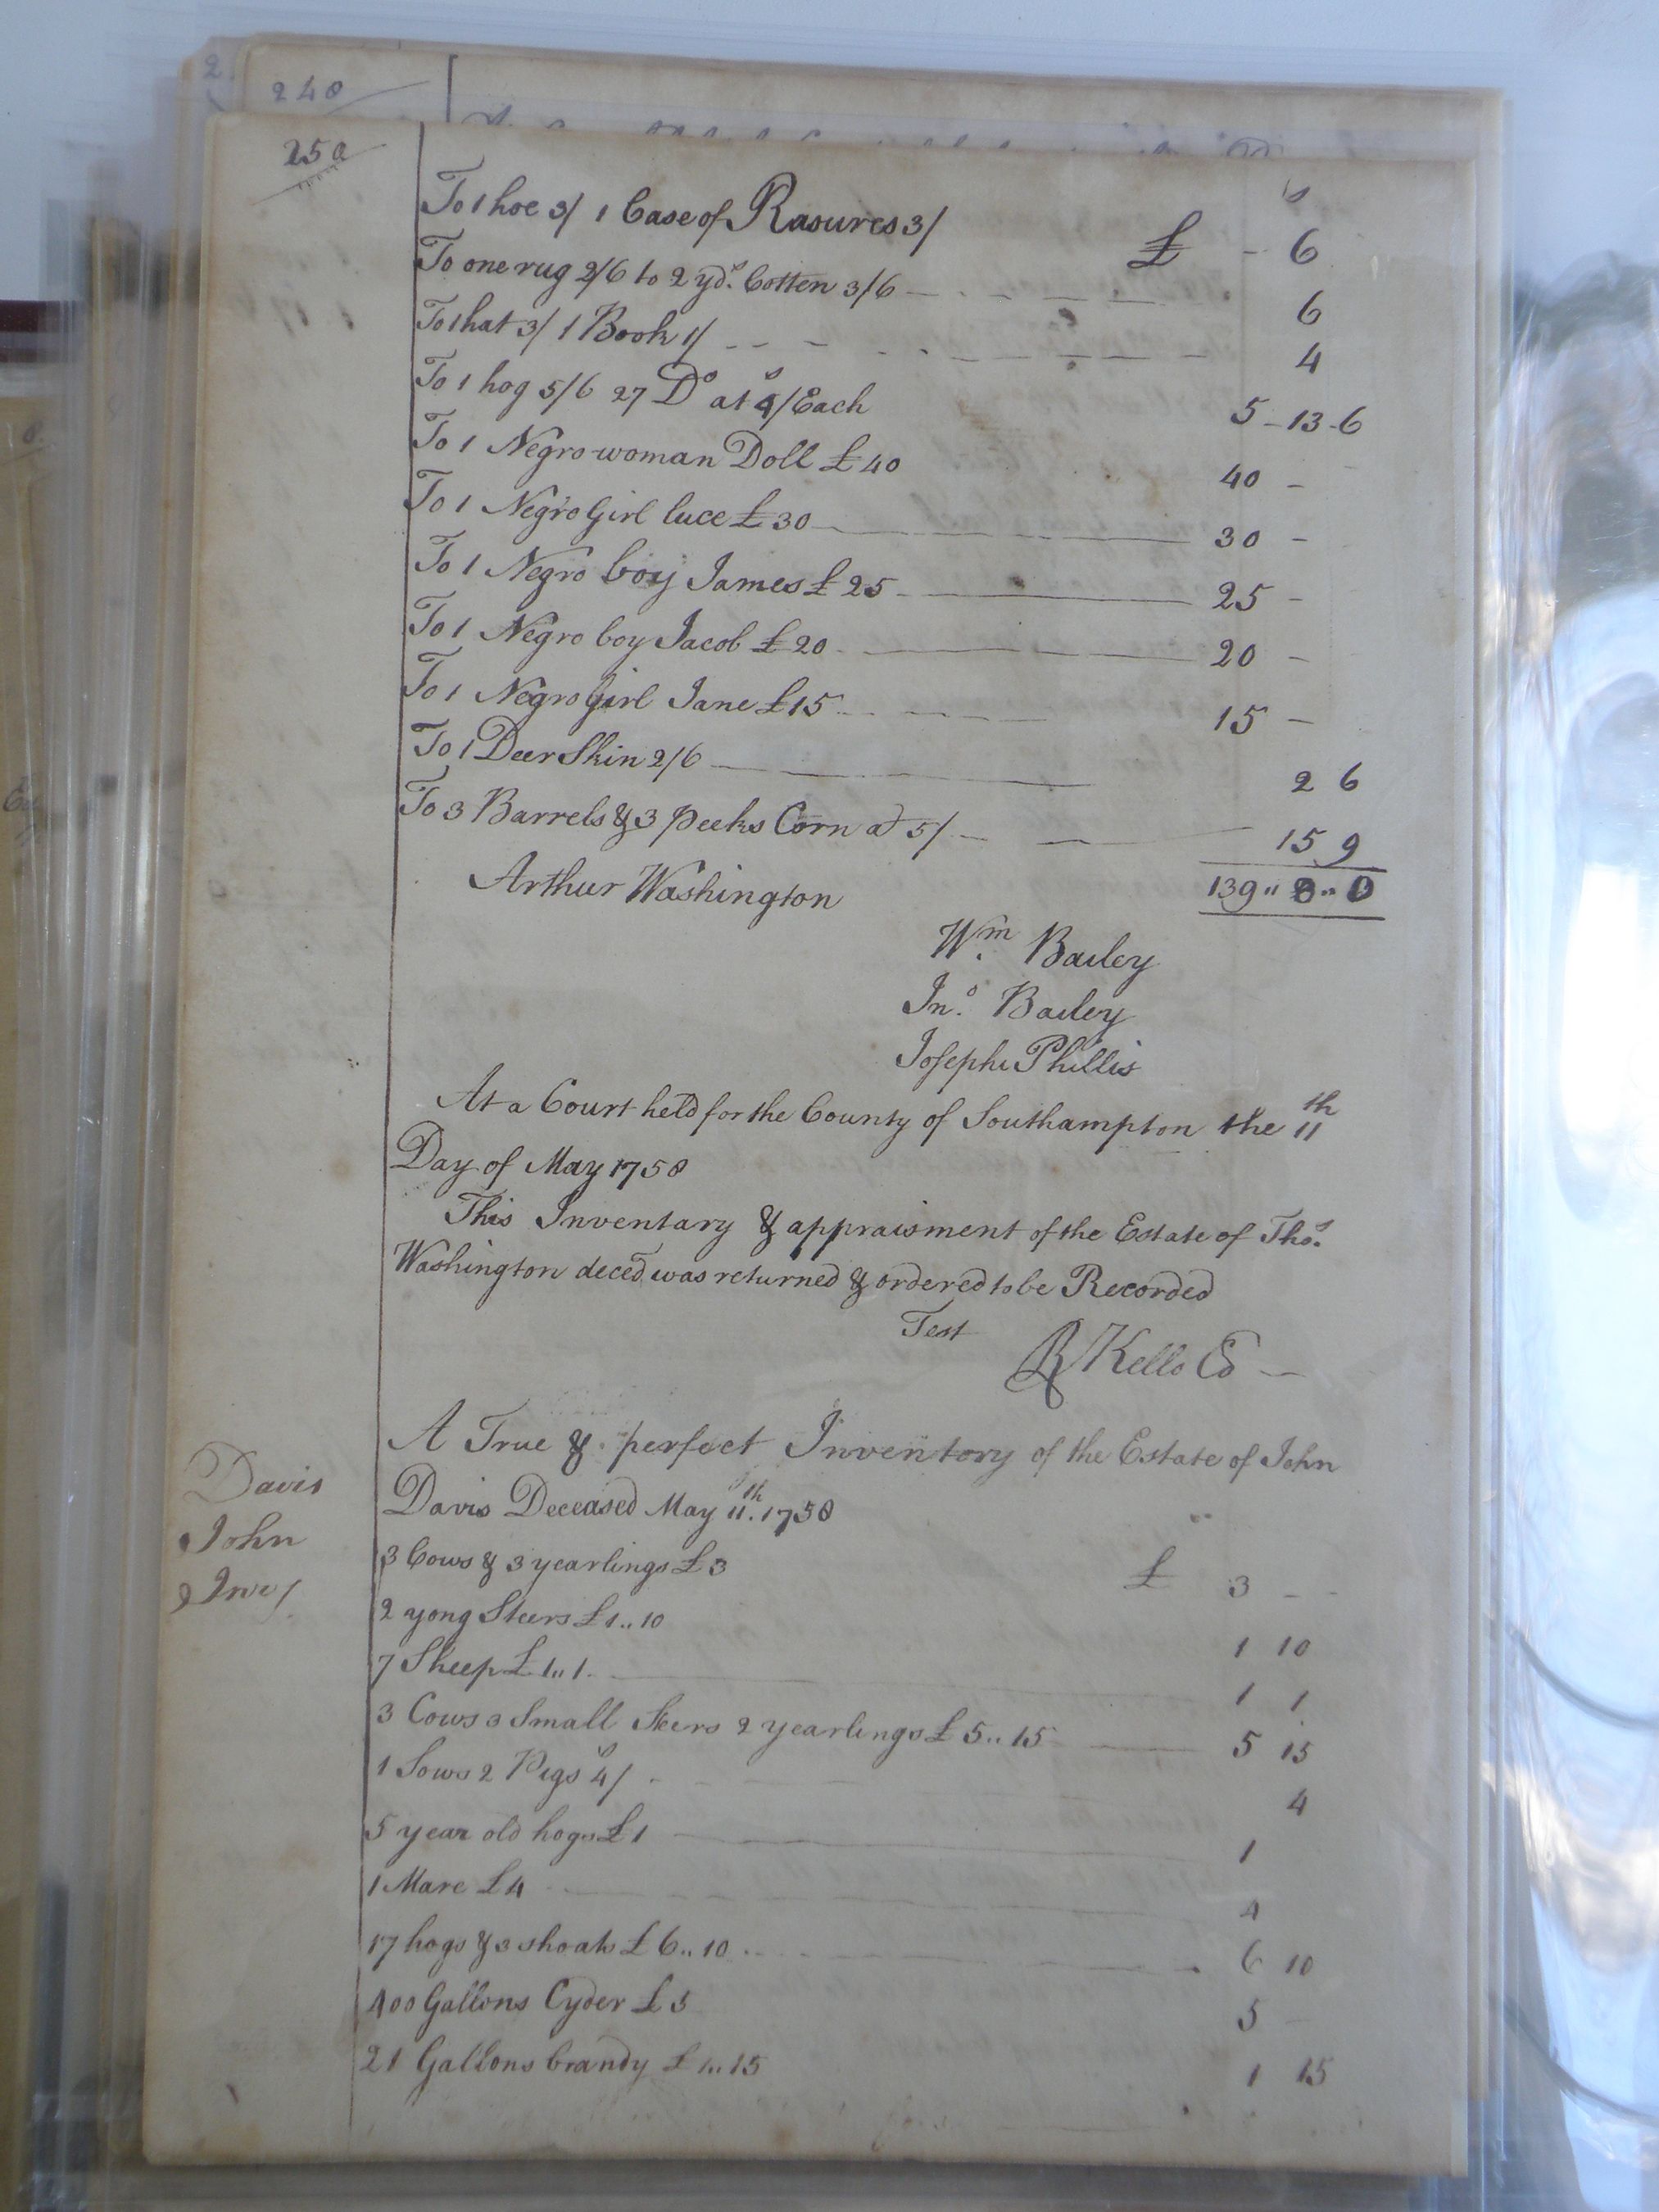 248
250
s
To 1 hoe 3/ 1 Case of Rasures 3/ £ - 6
To one rug 2/6 to 2 yds. Cotten 3/6 6
To 1 hat 3/ 1 Book 1/ 4
To 1 hog 5/6 27 Do at 4/ Each 5 - 13 - 6
To 1 Negro woman Doll £40 40 -
To 1 Negro Girl luce £30 30 -
To 1 Negro boy James £25 25 -
To 1 Negro boy Jacob £20 20 -
To 1 Negro Girl Jane £15 15 -
To 1 Deer Skin 2/6 2 6
To 3 Barrels & 3 peeks Corn at 5/ 15 9
139 " 8 " 0
Arthur Washington
Wm. Bailey
Jno. Bailey
Joseph Phillis
At a Court held for the County of Southampton the 11th
Day of May 1758
This Inventary & appraisment of the Estate of Thos.
Washington deced was returned & ordered to be Recorded
Test
R Kello
A True & perfect Inventory of the Estate of John
Davis
John
Davis Deceased May 11th. 1758
3 Cows & 3 yearlings £3 £ 3 - -
2 yong Steers £1 .. 10 1 10
7 Sheep £1 .. 1 1 1
3 Cows 3 Small Steers 2 yearlings £5 .. 15 5 15
1 Sows 2 Pigs 4/ 4
5 year old hogs £1 1
1 Mare £4 4
17 hogs & 3 shoats £6 .. 10 6 10
400 Gallons Cyder £5 5 -
21 Gallons brandy £1 .. 15 1 15